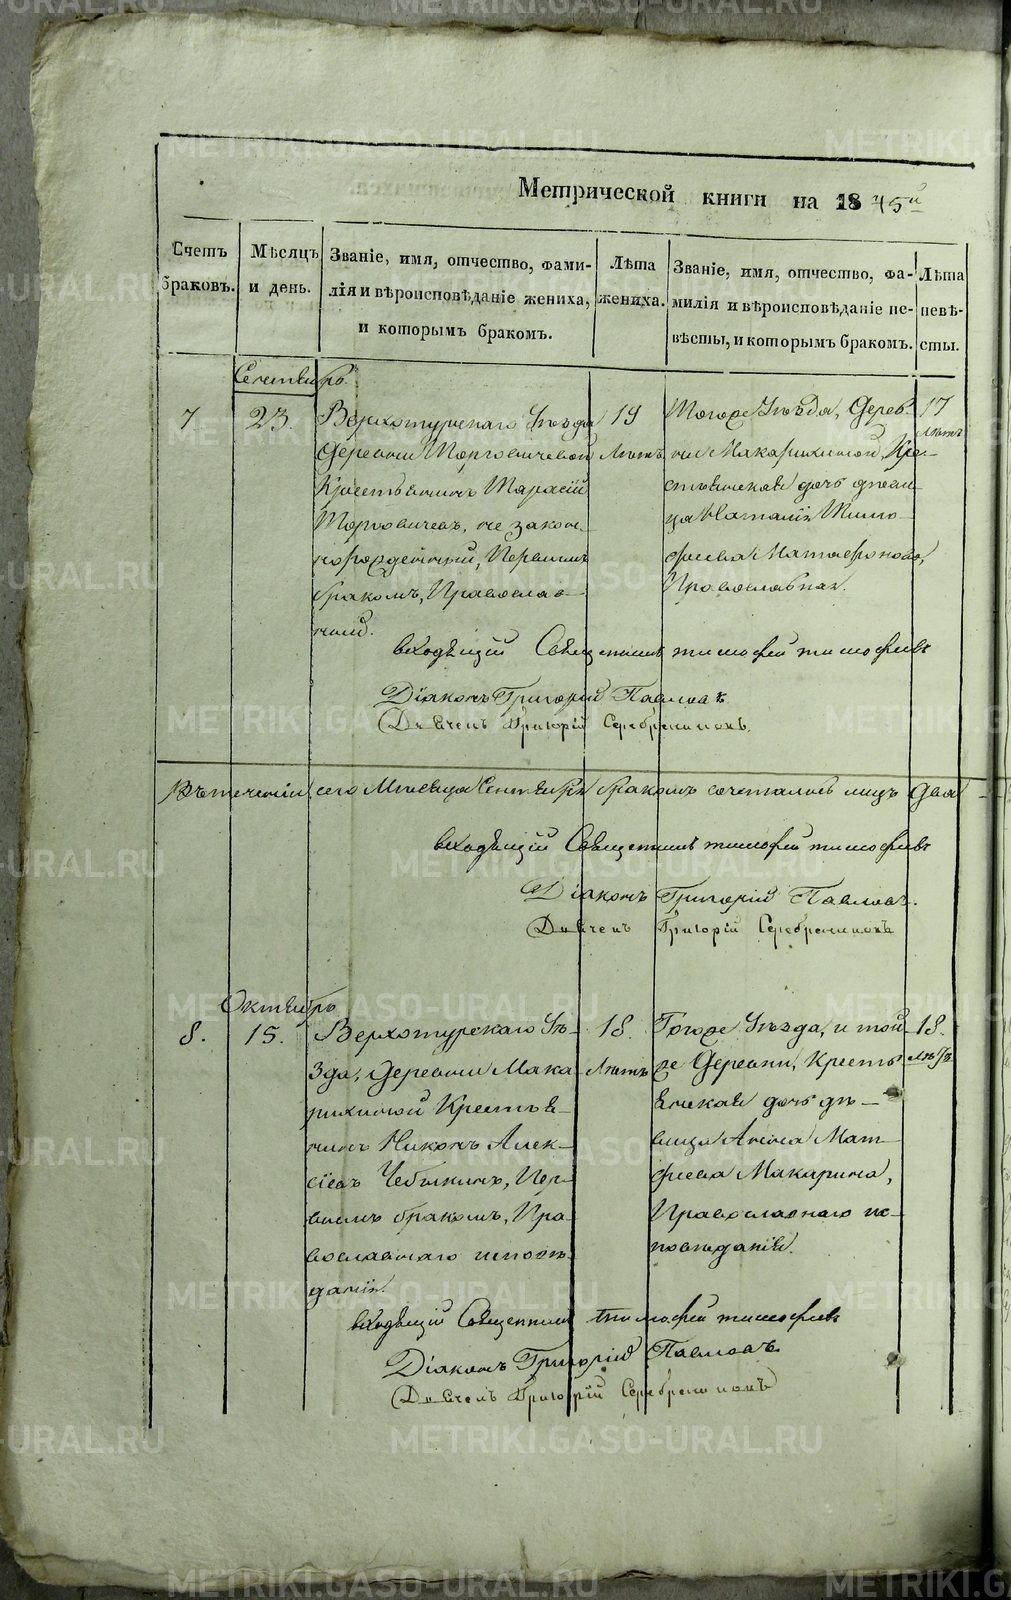 Метрической книги на 1845й
Счетъ
браковъ.
Мѣсяцъ
и день.
Званіе, имя, отчество, фами-
лія и вѣроисповѣданіе жениха,
и которымъ бракомъ.
Лѣта
жениха.
Званіе, имя, отчество, фа-
милія и вѣроисповѣданіе не-
вѣсты, и которымъ бракомъ.
Лѣта
невѣ-
сты.
Сентябрь
7
23.
Верхотурскаго Уѣзда
Деревни
Крестьянинъ Тарасій
не закон-
норожденный, Первымъ
бракомъ, Православ-
ный.
19
Лѣтъ
Тогоже Уѣзда, Дерев-
ни Макарихиной, Кре-
стьянская дочь дѣви-
ца Наталія Тимо-
феева
Православная.
17
Лѣтъ
входящій Священникъ Тимофей Тимофеевъ
Діаконъ Григорій Павловъ
Дьячекъ Григорій Серебрениковъ.
Въ теченіи сего Мѣсяца Сентября бракомъ сочеталось лицъ Два
входящій Священникъ Тимофей Тимофеевъ
Діаконъ Григорій Павловъ.
Дьячекъ Григорій Серебрениковъ
Октябрь
8.
15.
Верхотурскаго Уѣ-
зда, Деревни Мака
рихиной Крестья-
нинъ Никонъ Алек-
сіевъ Чебыкинъ, Пер-
вымъ бракомъ, Пра-
вославнаго исповѣ-
данія.
18.
Лѣтъ
Тогоже Уѣзда, и той
же Деревни, Кресть
янская дочь дѣ-
вица Анна Мат-
феева Макарина,
Православнаго ис-
повѣданія.
18.
Лѣтъ
входящій Священникъ Тимофей Тимофеевъ
Діаконъ Григорій Павловъ
Дьячекъ Григорій Серебрениковъ
METRIKI.GASO-URAL.RU